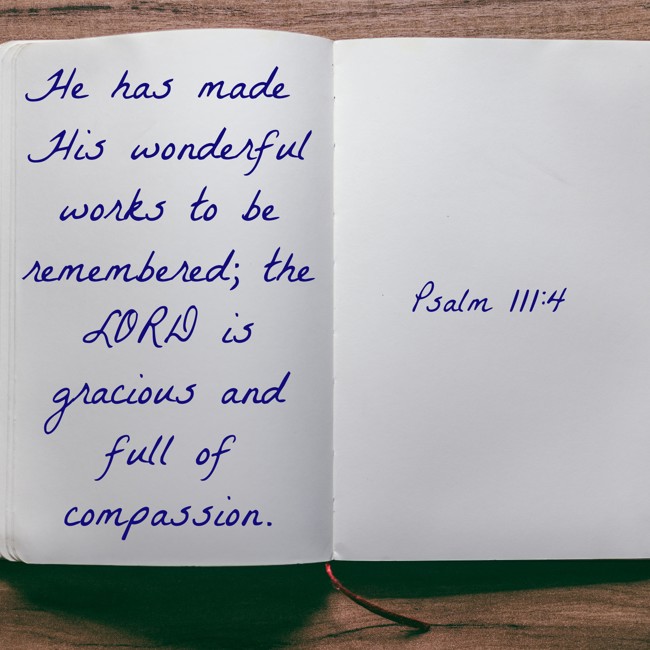 He has made
His wonderful
works to be
remembered; the
LORD is
gracious and
full of
compassion.
Psalm 111:4